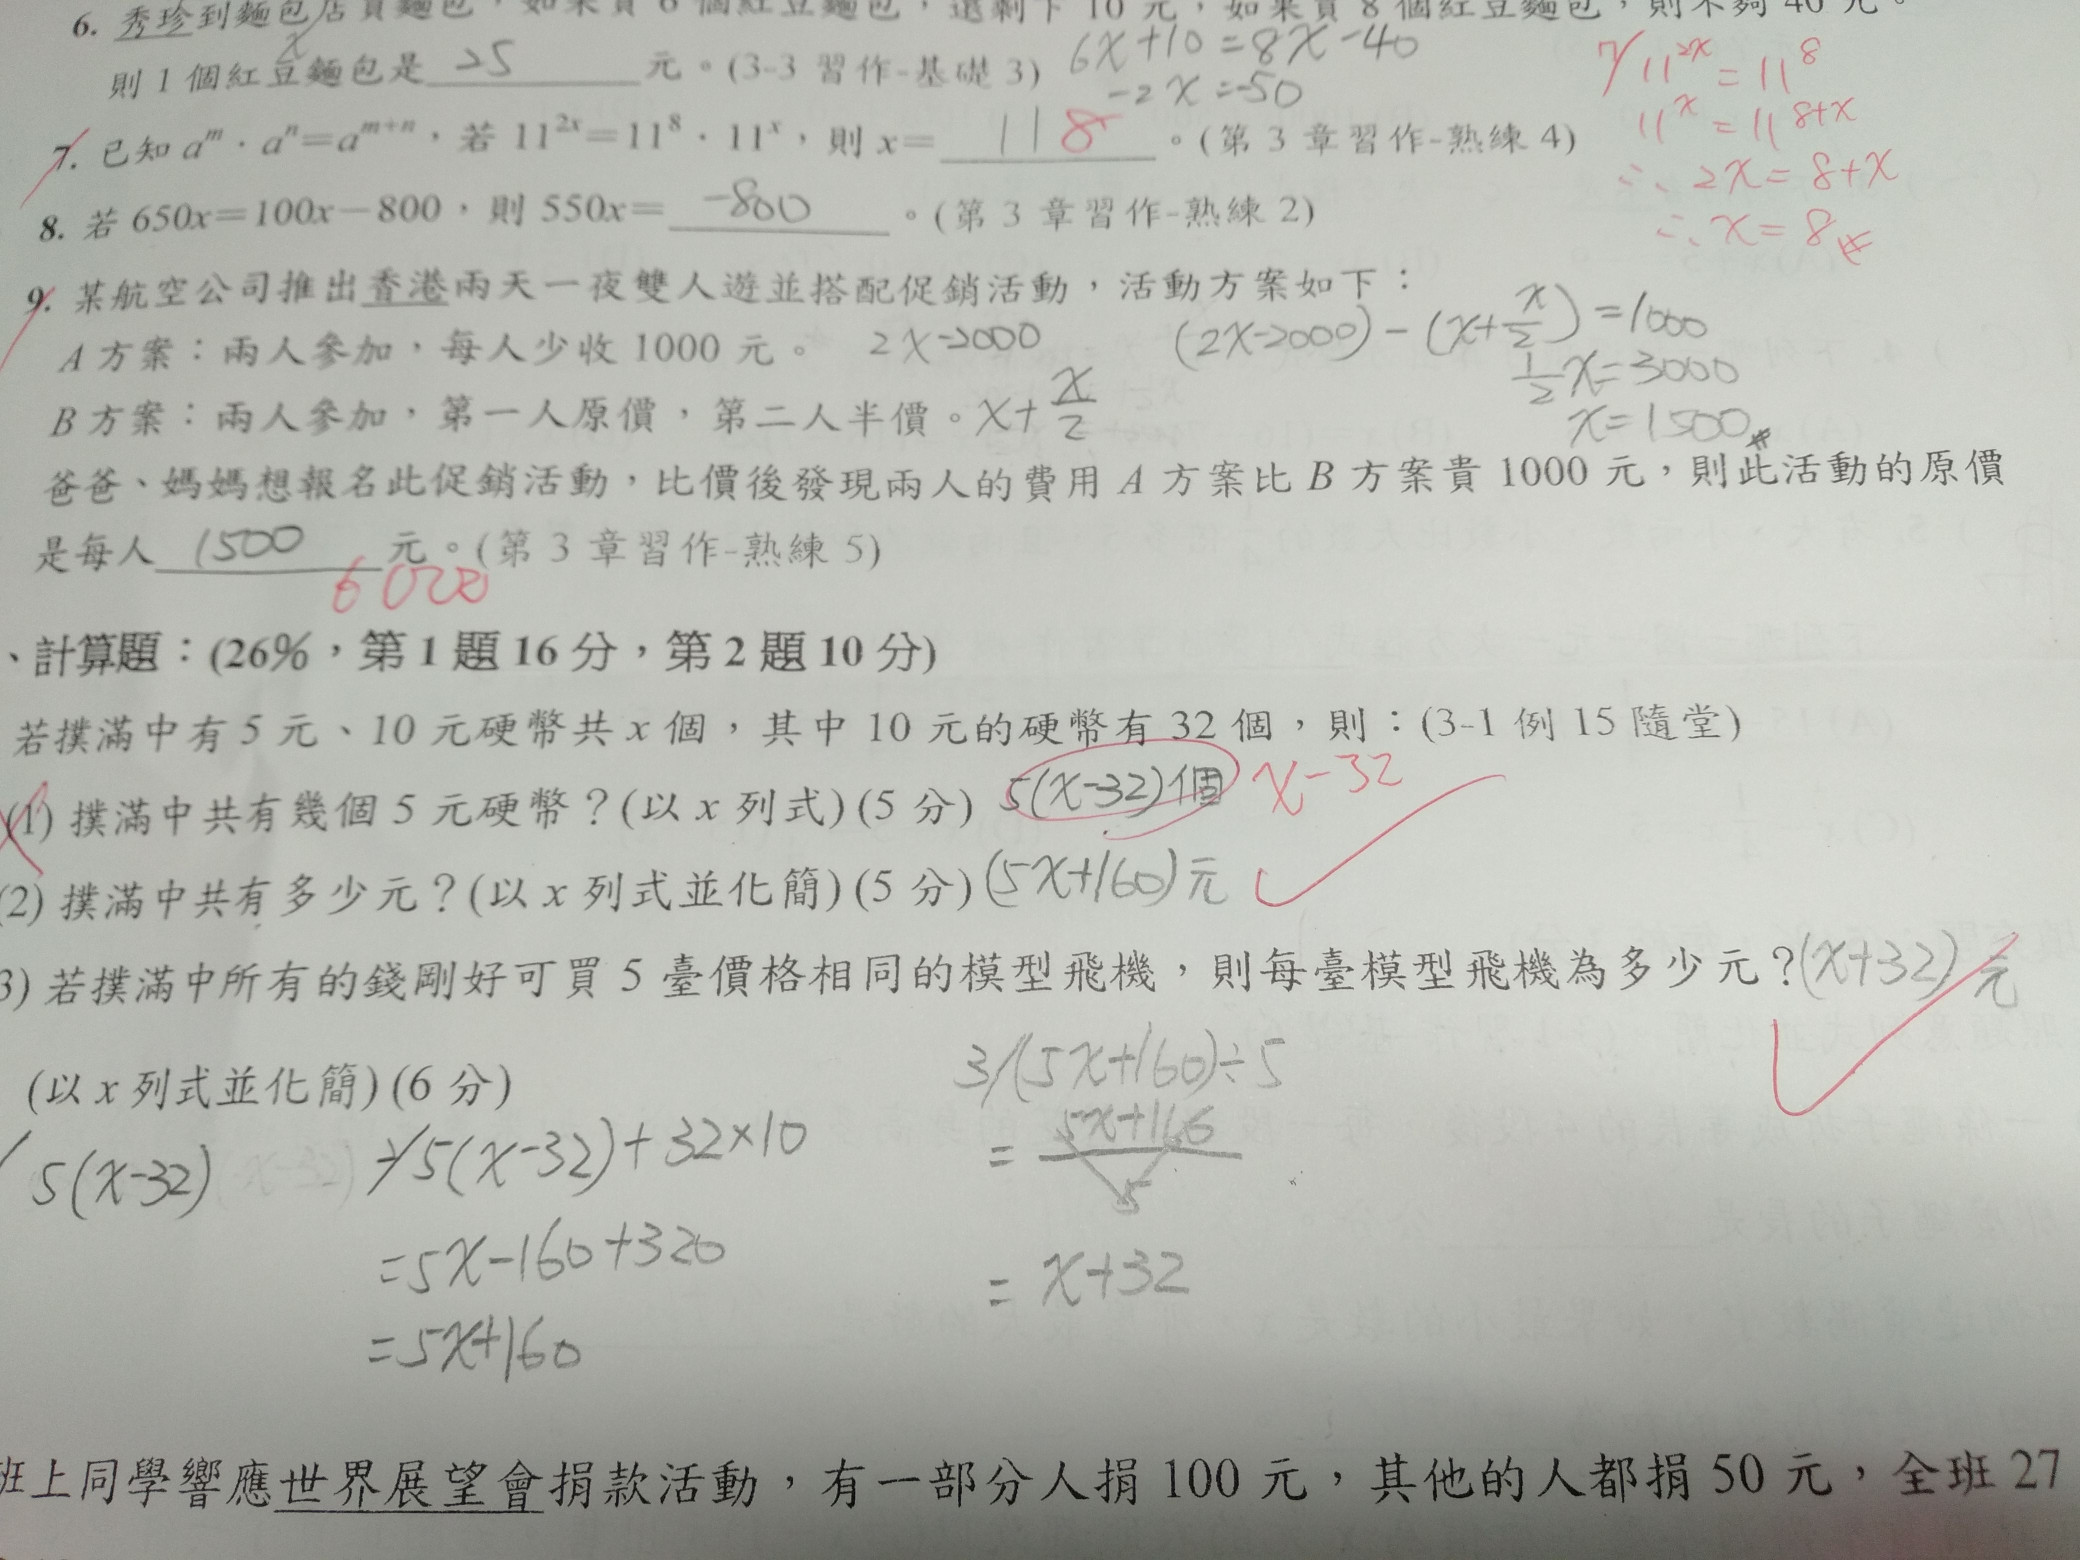 6. 秀珍到麵包店買麵包，如果買 6 個紅豆麵包，還剩下 10 元，如果買 8 個紅豆麵包，則不夠 40 元。
x
則 1 個紅豆麵包是 25 元。(3-3 習作-基礎 3) 6x+10=8x-40
-2x=-50
7/ 11^2x = 11^8
11^x = 11^8+x
∴ 2x = 8+x
∴ x = 8
7. 已知 a^m · a^n=a^m+n，若 11^2x=11^8 · 11^x，則 x= 11 8 。(第 3 章習作-熟練 4)
8. 若 650x=100x-800，則 550x= -800 。(第 3 章習作-熟練 2)
9. 某航空公司推出香港兩天一夜雙人遊並搭配促銷活動，活動方案如下：
A 方案：兩人參加，每人少收 1000 元。 2x-2000 (2x-2000)-(x+x/2)=1000
1/2x=3000
B 方案：兩人參加，第一人原價，第二人半價。x+x/2 x=1500
爸爸、媽媽想報名此促銷活動，比價後發現兩人的費用 A 方案比 B 方案貴 1000 元，則此活動的原價
是每人 1500 元。(第 3 章習作-熟練 5)
6000
、計算題：(26%，第 1 題 16 分，第 2 題 10 分)
若撲滿中有 5 元、10 元硬幣共 x 個，其中 10 元的硬幣有 32 個，則：(3-1 例 15 隨堂)
(1) 撲滿中共有幾個 5 元硬幣？(以 x 列式) (5 分) 5(x-32)個 x-32
(2) 撲滿中共有多少元？(以 x 列式並化簡) (5 分) (5x+160)元
3) 若撲滿中所有的錢剛好可買 5 臺價格相同的模型飛機，則每臺模型飛機為多少元？(x+32)元
(以 x 列式並化簡) (6 分)
5(x-32)
2/5(x-32)+32×10
=5x-160+320
=5x+160
3/(5x+160)÷5
= 5x+116/5
= x+32
班上同學響應世界展望會捐款活動，有一部分人捐 100 元，其他的人都捐 50 元，全班 27